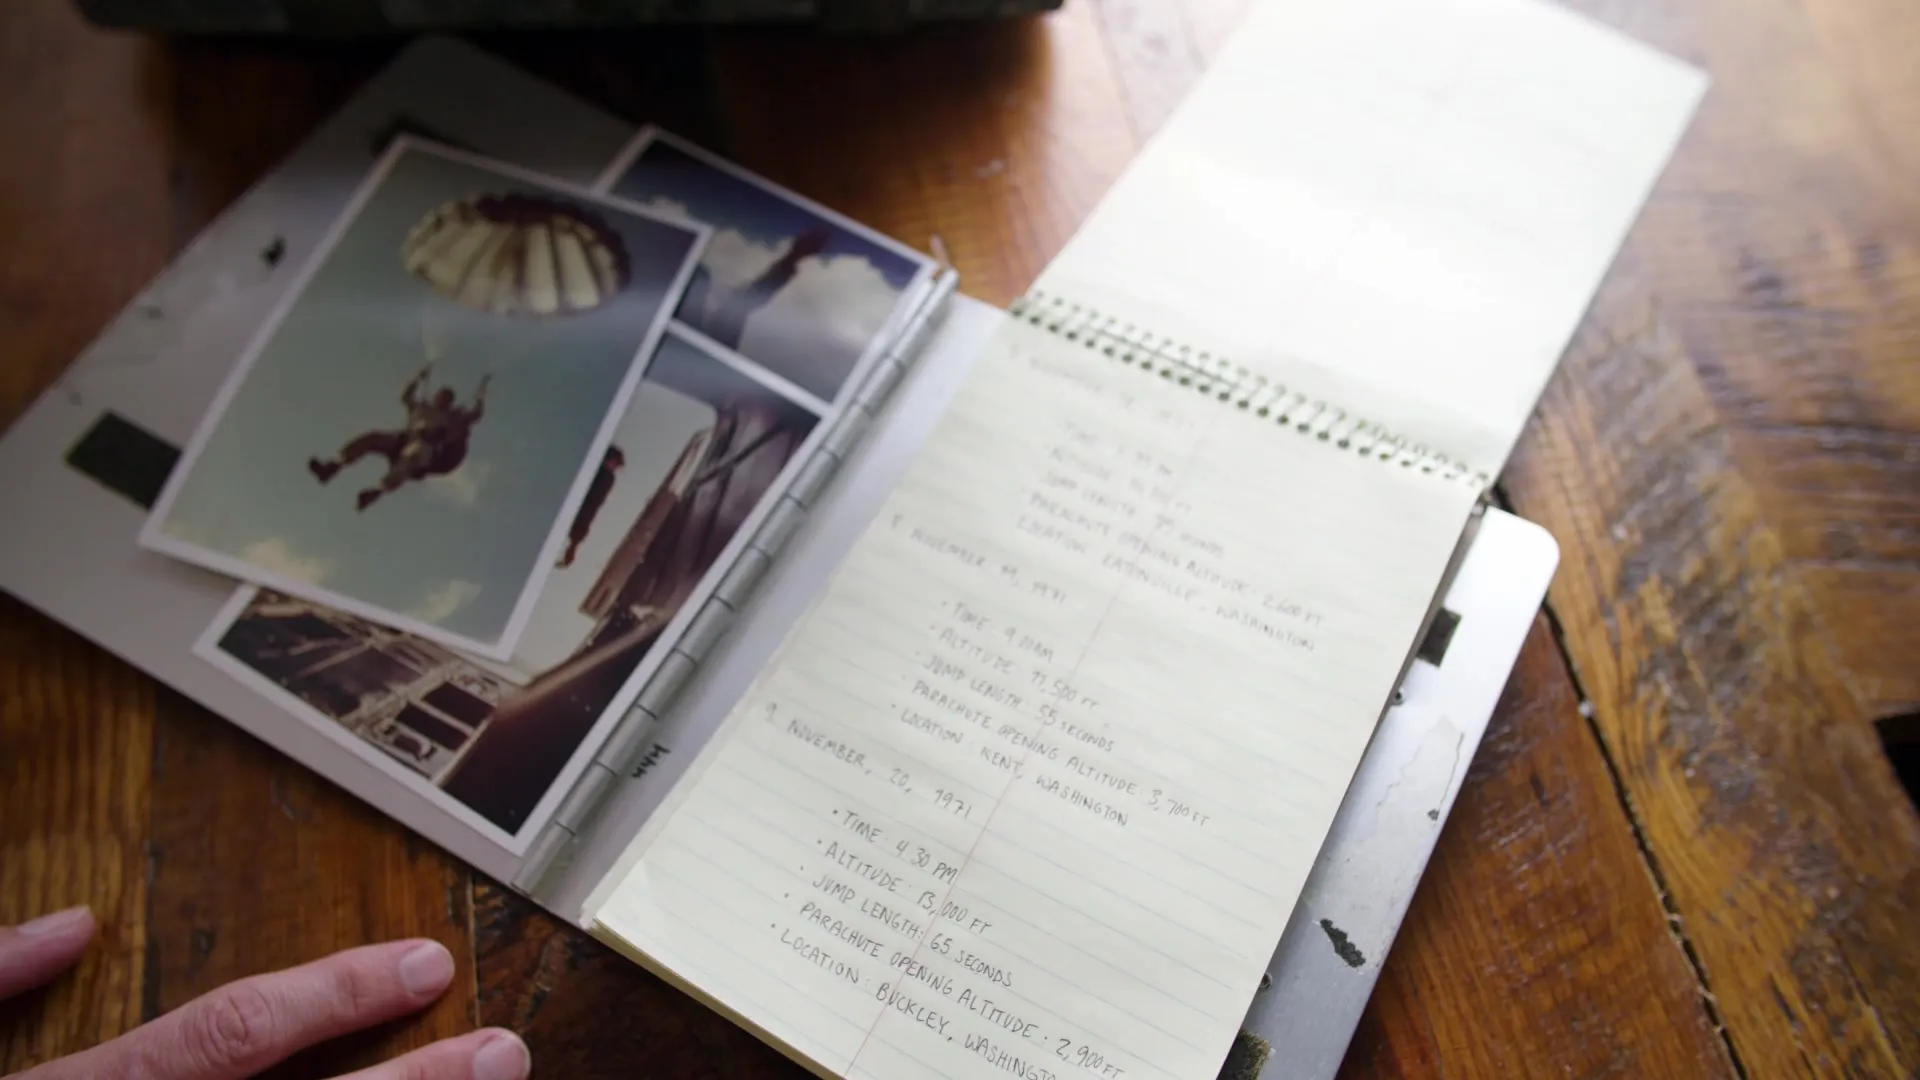 PARACHUTE OPENING ALTITUDE: 2,600 FT
LOCATION: EATONVILLE, WASHINGTON
8. NOVEMBER 19, 1971
• TIME: 9:00AM
• ALTITUDE: 11,500 FT
• JUMP LENGTH: 55 SECONDS
• PARACHUTE OPENING ALTITUDE: 3,700 FT
• LOCATION: KENT, WASHINGTON
9. NOVEMBER, 20, 1971
• TIME: 4:30 PM
• ALTITUDE: 13,000 FT
• JUMP LENGTH: 65 SECONDS
• PARACHUTE OPENING ALTITUDE: 2,900 FT
• LOCATION: BUCKLEY, WASHINGTO